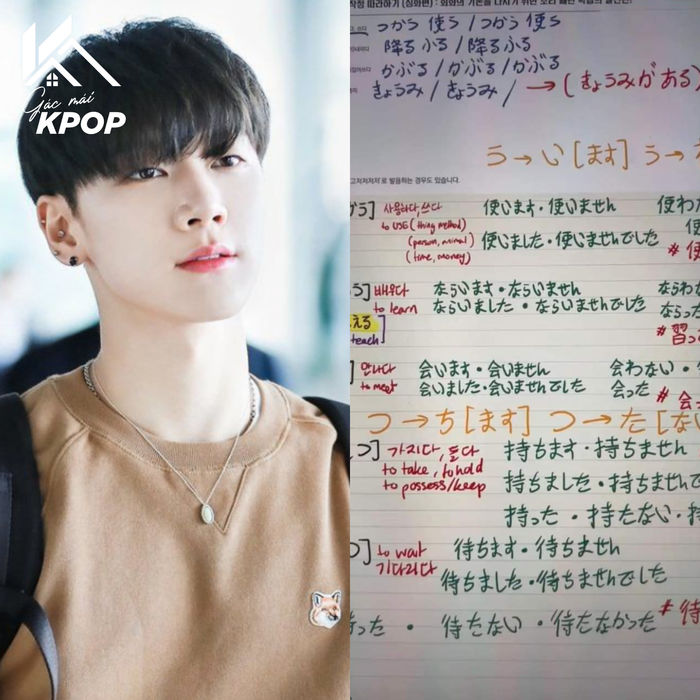 Gác mái
KPOP
つかう 使う / つかう 使う
降る ふる / 降る ふる
かぶる / かぶる / かぶる
きょうみ / きょうみ / → (きょうみが ある)
う → い [ます] う →
로 발음하는 경우도 있습니다.
사용하다, 쓰다 使います・使いません
to USE (thing method)
(person, animal) 使いました・使いませんでした
(time, money)
배우다 ならいます・ならいません
to learn ならいました・ならいませんでした
える
teach
만나다 会います・会いません 会わない・
to meet 会いました・会いませんでした 会った
つ → ち [ます] つ → た [ない
가지다, 들다 持ちます・持ちません
to take, to hold
to possess/keep 持ちました・持ちませんで
持った・持たない・持
to wait 待ちます・待ちません
기다리다 待ちました・待ちませんでした
った・待たない・待たなかった